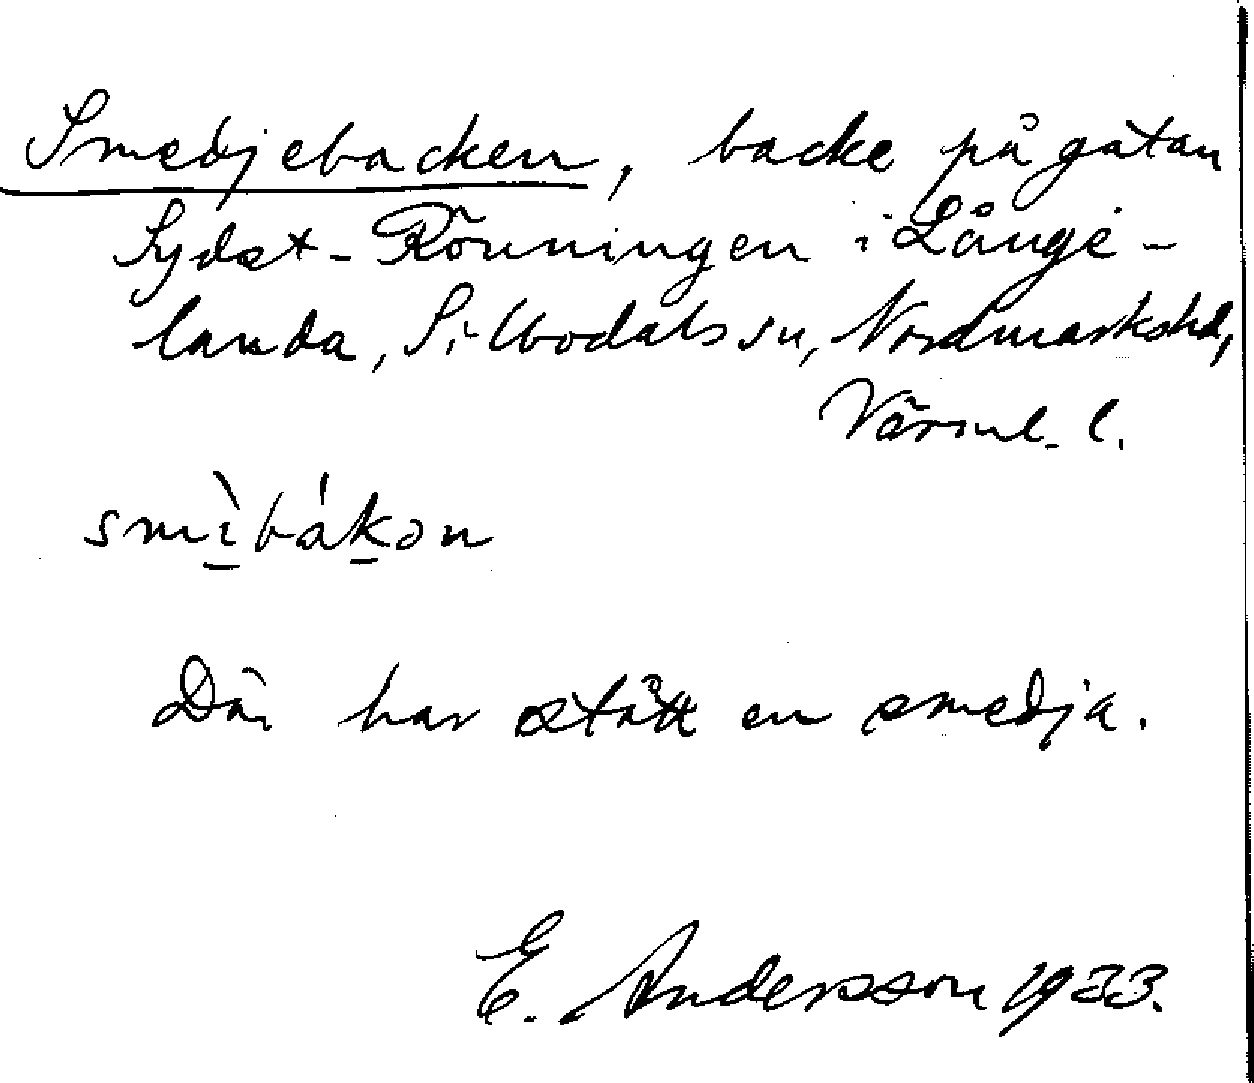 Smedjebacken, backe på gatan
Sydöst-Rönningen i Långe-
landa, Silbodals sn, Nordmarks hd,
Värml. l.
smìbákon
Där har stått en smedja.
E. Andersson 1933.